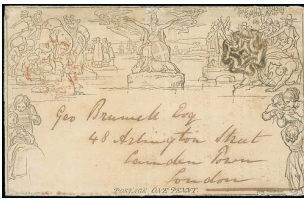 Geo Brunell Esq
48 Arlington Street
Camden Town
London
POSTAGE ONE PENNY.